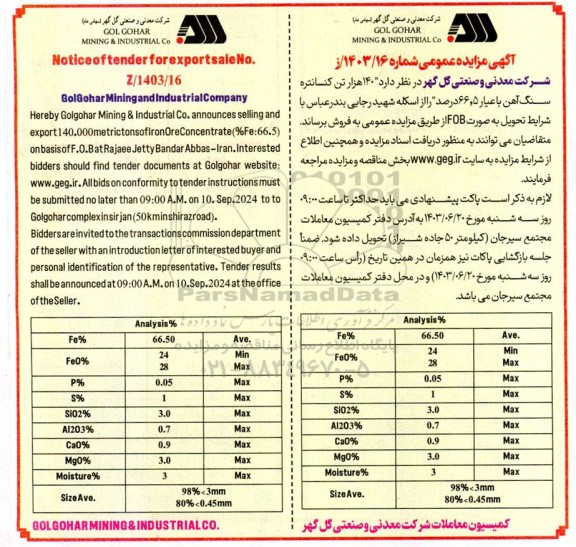 شرکت معدنی و صنعتی گل گهر (سهامی عام)
GOL GOHAR
MINING & INDUSTRIAL Co
Notice of tender for export sale No.
Z/1403/16
GolGohar Mining and Industrial Company
Hereby Golgohar Mining & Industrial Co. announces selling and
export 140.000 metric tons of Iron Ore Concentrate (%Fe:66.5)
on basis of F.O.B at Rajaee Jetty Bandar Abbas – Iran. Interested
bidders should find tender documents at Golgohar website:
www.geg.ir. All bids on conformity to tender instructions must
be submitted no later than 09:00 A.M. on 10. Sep. 2024 to to
Golgohar complex in sirjan (50km in shiraz road).
Bidders are invited to the transactions commission department
of the seller with an introduction letter of interested buyer and
personal identification of the representative. Tender results
shall be announced at 09:00 A.M. on 10. Sep. 2024 at the office
of the Seller.
Analysis%
Fe% 66.50 Ave.
FeO% 24 Min
28 Max
P% 0.05 Max
S% 1 Max
SiO2% 3.0 Max
Al2O3% 0.7 Max
CaO% 0.9 Max
MgO% 3.0 Max
Moisture% 3 Max
Size Ave. 98%<3mm
80%<0.45mm
GOLGOHAR MINING & INDUSTRIAL CO.
شرکت معدنی و صنعتی گل گهر (سهامی عام)
GOL GOHAR
MINING & INDUSTRIAL Co
آگهی مزایده عمومی شماره ۱۴۰۳/۱۶/ز
شرکت معدنی و صنعتی گل گهر در نظر دارد "۱۴۰ هزار تن کنسانتره
سنگ آهن با عیار ۶۶٫۵ درصد" را از اسکله شهید رجایی بندرعباس با
شرایط تحویل به صورت FOB از طریق مزایده عمومی به فروش برساند.
متقاضیان می توانند به منظور دریافت اسناد مزایده و همچنین اطلاع
از شرایط مزایده به سایت www.geg.ir بخش مناقصه و مزایده مراجعه
فرمایند.
لازم به ذکر است پاکت پیشنهادی می باید حداکثر تا ساعت ۰۹:۰۰
روز سه شنبه مورخ ۱۴۰۳/۰۶/۲۰ به آدرس دفتر کمیسیون معاملات
مجتمع سیرجان (کیلومتر ۵۰ جاده شیراز) تحویل داده شود. ضمناً
جلسه بازگشایی پاکات نیز همزمان در همین تاریخ (رأس ساعت ۰۹:۰۰
روز سه شنبه مورخ ۱۴۰۳/۰۶/۲۰) و در محل دفتر کمیسیون معاملات
مجتمع سیرجان می باشد.
Analysis%
Fe% 66.50 Ave.
FeO% 24 Min
28 Max
P% 0.05 Max
S% 1 Max
SiO2% 3.0 Max
Al2O3% 0.7 Max
CaO% 0.9 Max
MgO% 3.0 Max
Moisture% 3 Max
Size Ave. 98%<3mm
80%<0.45mm
کمیسیون معاملات شرکت معدنی و صنعتی گل گهر
ParsNamadData
پایگاه اطلاع رسانی مناقصه و مزایده
۰۲۱-۸۸۳۴۹۶۷۰-۵